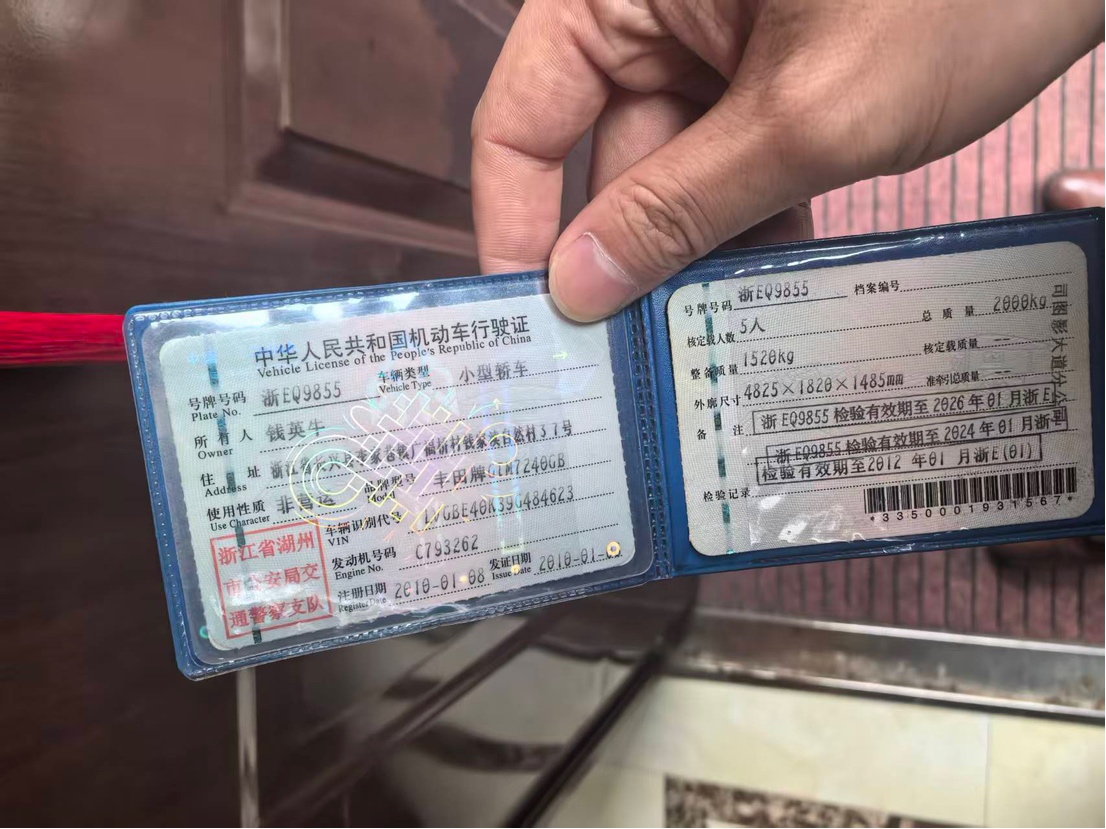 中华人民共和国机动车行驶证
Vehicle License of the People's Republic of China
号牌号码 浙EQ9855 车辆类型 小型轿车
Plate No. Vehicle Type
所有人 钱英牛
Owner
住址 浙江省
Address
使用性质 非营运 品牌型号 丰田牌 7240GB
Use Character Model
车辆识别代号 GBE40K39G484623
VIN
发动机号码 C793262
Engine No.
注册日期 2010-01-08 发证日期 2010-01-
Register Date Issue Date
浙江省湖州
市公安局交
通警察支队
号牌号码 浙EQ9855 档案编号
核定载人数 5人 总质量 2000kg
整备质量 1520kg 核定载质量 --
外廓尺寸 4825×1820×1485mm 准牵引总质量 --
备注 浙EQ9855检验有效期至2026年01月浙E
浙EQ9855检验有效期至2024年01月浙E
检验有效期至2012年01月浙E(01)
检验记录
*3350001931567*